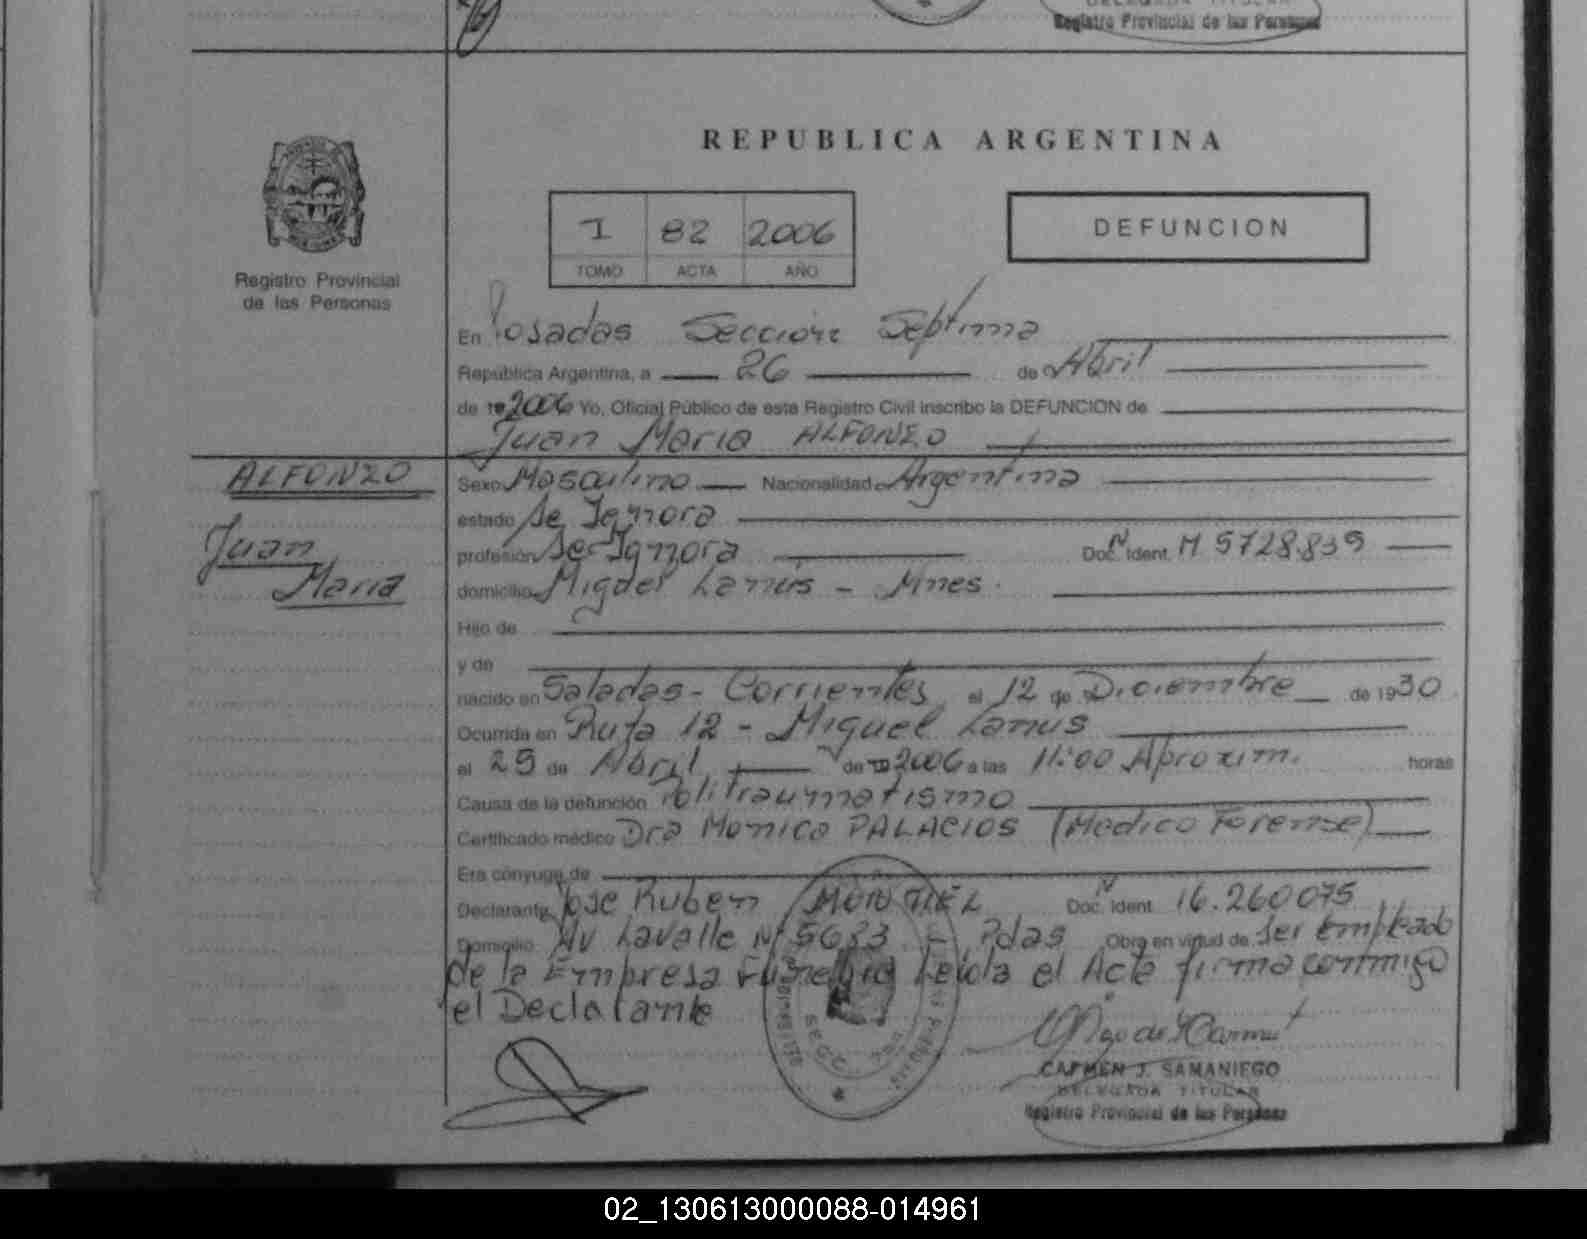 DELEGADA TITULAR
Registro Provincial de las Personas
REPUBLICA ARGENTINA
1 82 2006
TOMO ACTA AÑO
DEFUNCION
Registro Provincial
de las Personas
En Posadas Sección Septima
República Argentina, a 26 de Abril
de 19 2006 Yo, Oficial Público de este Registro Civil inscribo la DEFUNCION de
Juan Maria ALFONZO
ALFONZO
Juan
Maria
Sexo Masculino Nacionalidad Argentina
estado Se Ignora
profesión Se Ignora Doc. N Ident. M 5728.839
domicilio Miguel Lanús - Mnes.
Hijo de
y de
nacido en Saladas - Corrientes el 12 de Diciembre de 1930
Ocurrida en Ruta 12 - Miguel Lanus
el 25 de Abril de 19 2006 a las 11:00 Aproxim. horas
Causa de la defunción Politraumatismo
Certificado médico Dra Monica PALACIOS (Medico Forense)
Era cónyuge de
Declarante Jose Ruben Doc. N Ident. 16.260075
Domicilio Av Lavalle Nº 5633 - Pdas Obra en virtud de Ser Empleado
de la Empresa Funebre Leida el Acta firma conmigo
el Declarante
CARMEN J. SAMANIEGO
DELEGADA TITULAR
Registro Provincial de las Personas
02_130613000088-014961